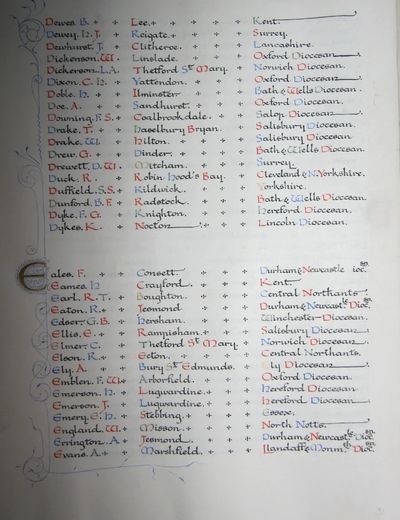 Dewes. B. Lee. Kent.
Dewey. H. J. Reigate. Surrey.
Dewhurst. J. Clitheroe. Lancashire.
Dickenson. W. Linslade. Oxford Diocesan.
Dickerson. L.A. Thetford St Mary. Norwich Diocesan.
Dixon. C. H. Yattendon. Oxford Diocesan.
Doble. H. Ilminster. Bath & Wells Diocesan.
Doe. A. Sandhurst. Oxford Diocesan.
Downing. F. S. Coalbrookdale. Salop Diocesan.
Drake. T. Haselbury Bryan. Salisbury Diocesan.
Drake. W. Hilton. Salisbury Diocesan.
Drew. G. Dinder. Bath & Wells Diocesan.
Drewett. D. W. Mitcham. Surrey.
Duck. R. Robin Hood's Bay. Cleveland & N. Yorkshire.
Duffield. S. S. Kildwick. Yorkshire.
Dunford. B. F. Radstock. Bath & Wells Diocesan.
Dyke. F. G. Knighton. Hereford Diocesan.
Dykes. K. Nocton. Lincoln Diocesan.
Eales. F. Consett. Durham & Newcastle Dioc.sn.
Eames. H. Crayford. Kent.
Earl. R. T. Boughton. Central Northants.
Eaton. R. Jesmond. Durham & Newcastle Dioc.sn.
Edser. G. B. Hersham. Winchester Diocesan.
Ellis. E. Rampisham. Salisbury Diocesan.
Elmer. C. Thetford St Mary. Norwich Diocesan.
Elson. R. Ecton. Central Northants.
Ely. A. Bury St Edmunds. Ely Diocesan.
Emblen. F. W. Arborfield. Oxford Diocesan.
Emerson. H. Lugwardine. Hereford Diocesan
Emerson. J. Lugwardine. Hereford Diocesan.
Emery. E. H. Stebbing. Essex.
England. W. Misson. North Notts.
Errington. A. Jesmond. Durham & Newcastle Dioc.sn.
Evans. A. Marshfield. Llandaff & Monmth Dioc.sn.